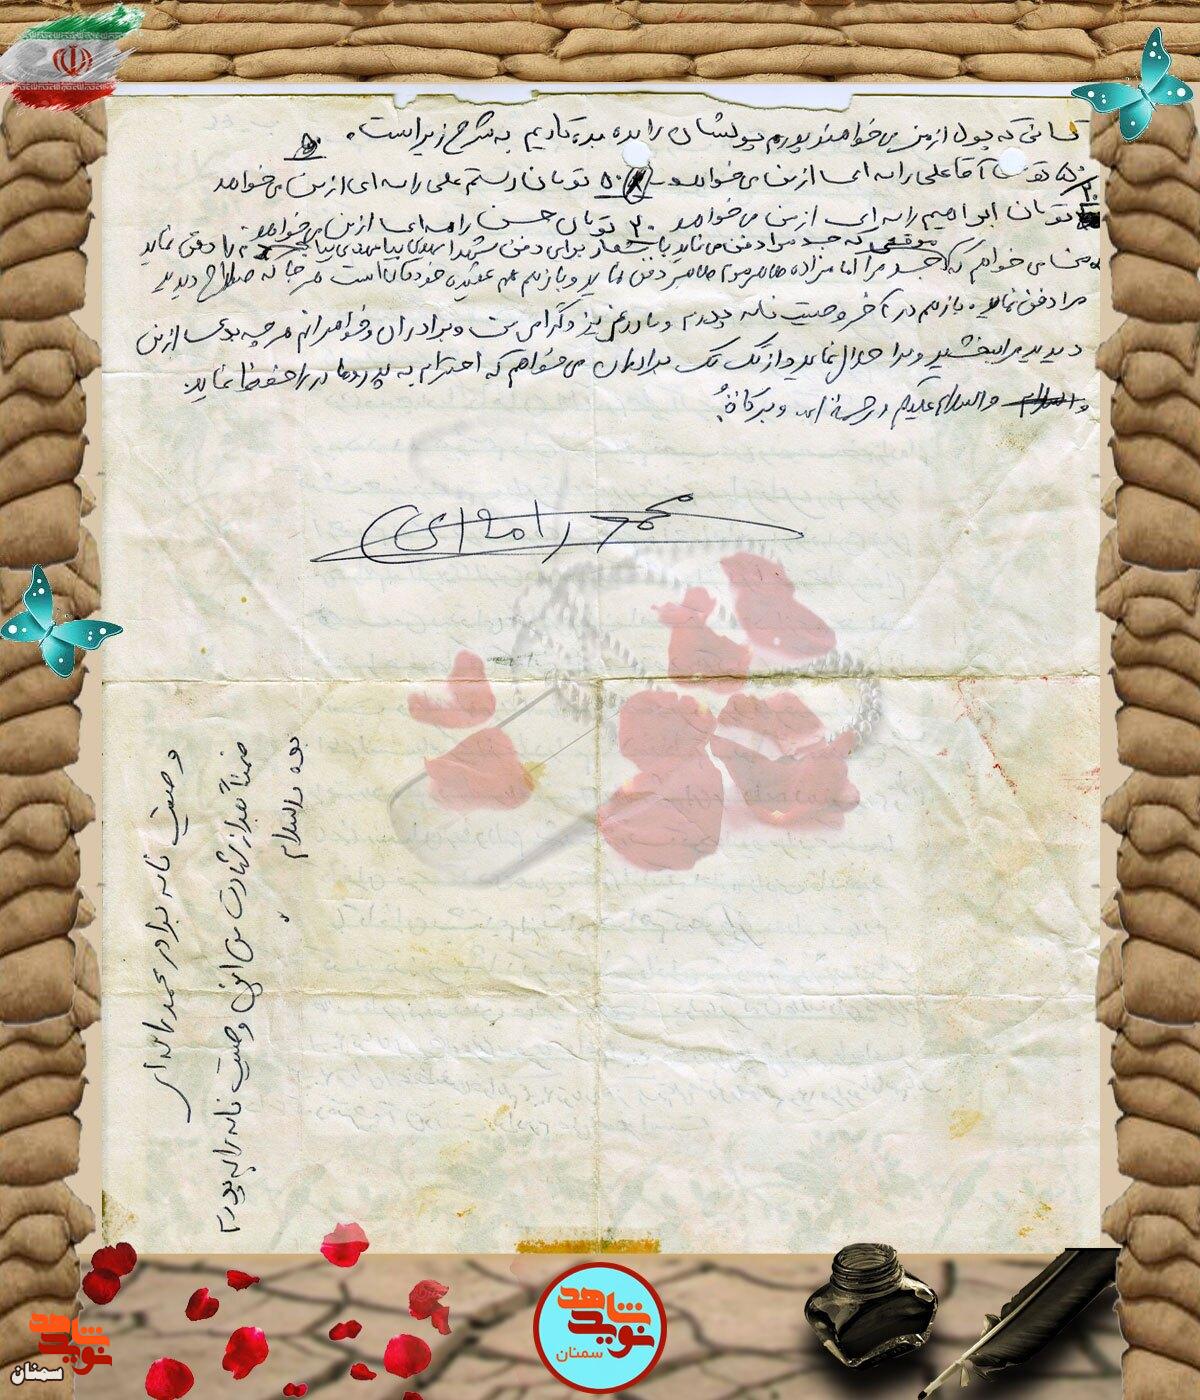 کسانی که پول از من می‌خواهند پدرم پولشان را بده بده‌کاریم به شرح زیر است.
آقا علی رامه‌ای از من می‌خواهد ۵۰ تومان رستم علی رامه‌ای از من می‌خواهد
تومان ابراهیم رامه‌ای از من می‌خواهد ۲۰ تومان حسن رامه‌ای از من می‌خواهد
موقعی که جسد مرا دفن می‌نماید با شعار برای دفن شهدا مهدی بیا مهدی بیا مرا دفن نماید
ضمنا می‌خواهم که جسد مرا امامزاده طاهر مطهر دفن نماید و باز هم به عقیده خودتان است هر جا که صلاح دیدید
مرا دفن نماید. باز هم در آخر وصیت نامه پدرم و مادر عزیز و گرامی من و برادران و خواهرانم هر چه بدی از من
دیدید مرا ببخشید و مرا حلال نماید و از تک تک برادران می‌خواهم که احترام به پدر و مادر را حفظ نماید.
والسلام والسلام علیکم و رحمة الله و برکاته
محمد رامه‌ای
وصیت نامه برادر محمد رامه‌ای
ضمناً بعد از شهادت من این وصیت نامه را به پدرم
بده والسلام
نوید شاهد
سمنان
نوید شاهد
سمنان